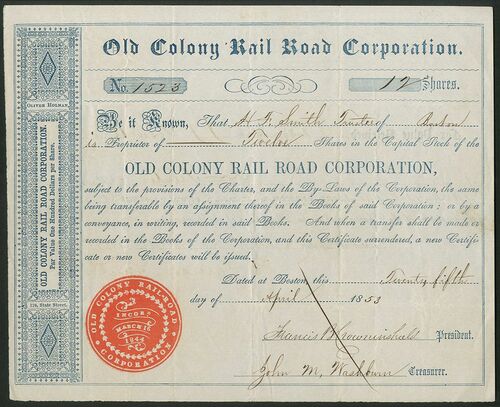 Old Colony Rail Road Corporation.
No. 1523
12 Shares.
Be it Known, That H. F. Smith Trustee of Boston
is Proprietor of Twelve Shares in the Capital Stock of the
OLD COLONY RAIL ROAD CORPORATION,
subject to the provisions of the Charter, and the By-Laws of the Corporation, the same
being transferable by an assignment thereof in the Books of said Corporation; or by a
conveyance, in writing, recorded in said Books. And when a transfer shall be made or
recorded in the Books of the Corporation, and this Certificate surrendered, a new Certifi-
cate or new Certificates will be issued.
Dated at Boston this Twenty fifth
day of April 1853
Francis B Crowninshield President.
John M. Washburn Treasurer.
OLIVER HOLMAN,
OLD COLONY RAIL ROAD CORPORATION.
Par Value One Hundred Dollars per Share.
124, State Street.
OLD COLONY RAIL-ROAD
CORPORATION
INCOR?
MARCH 16
1844